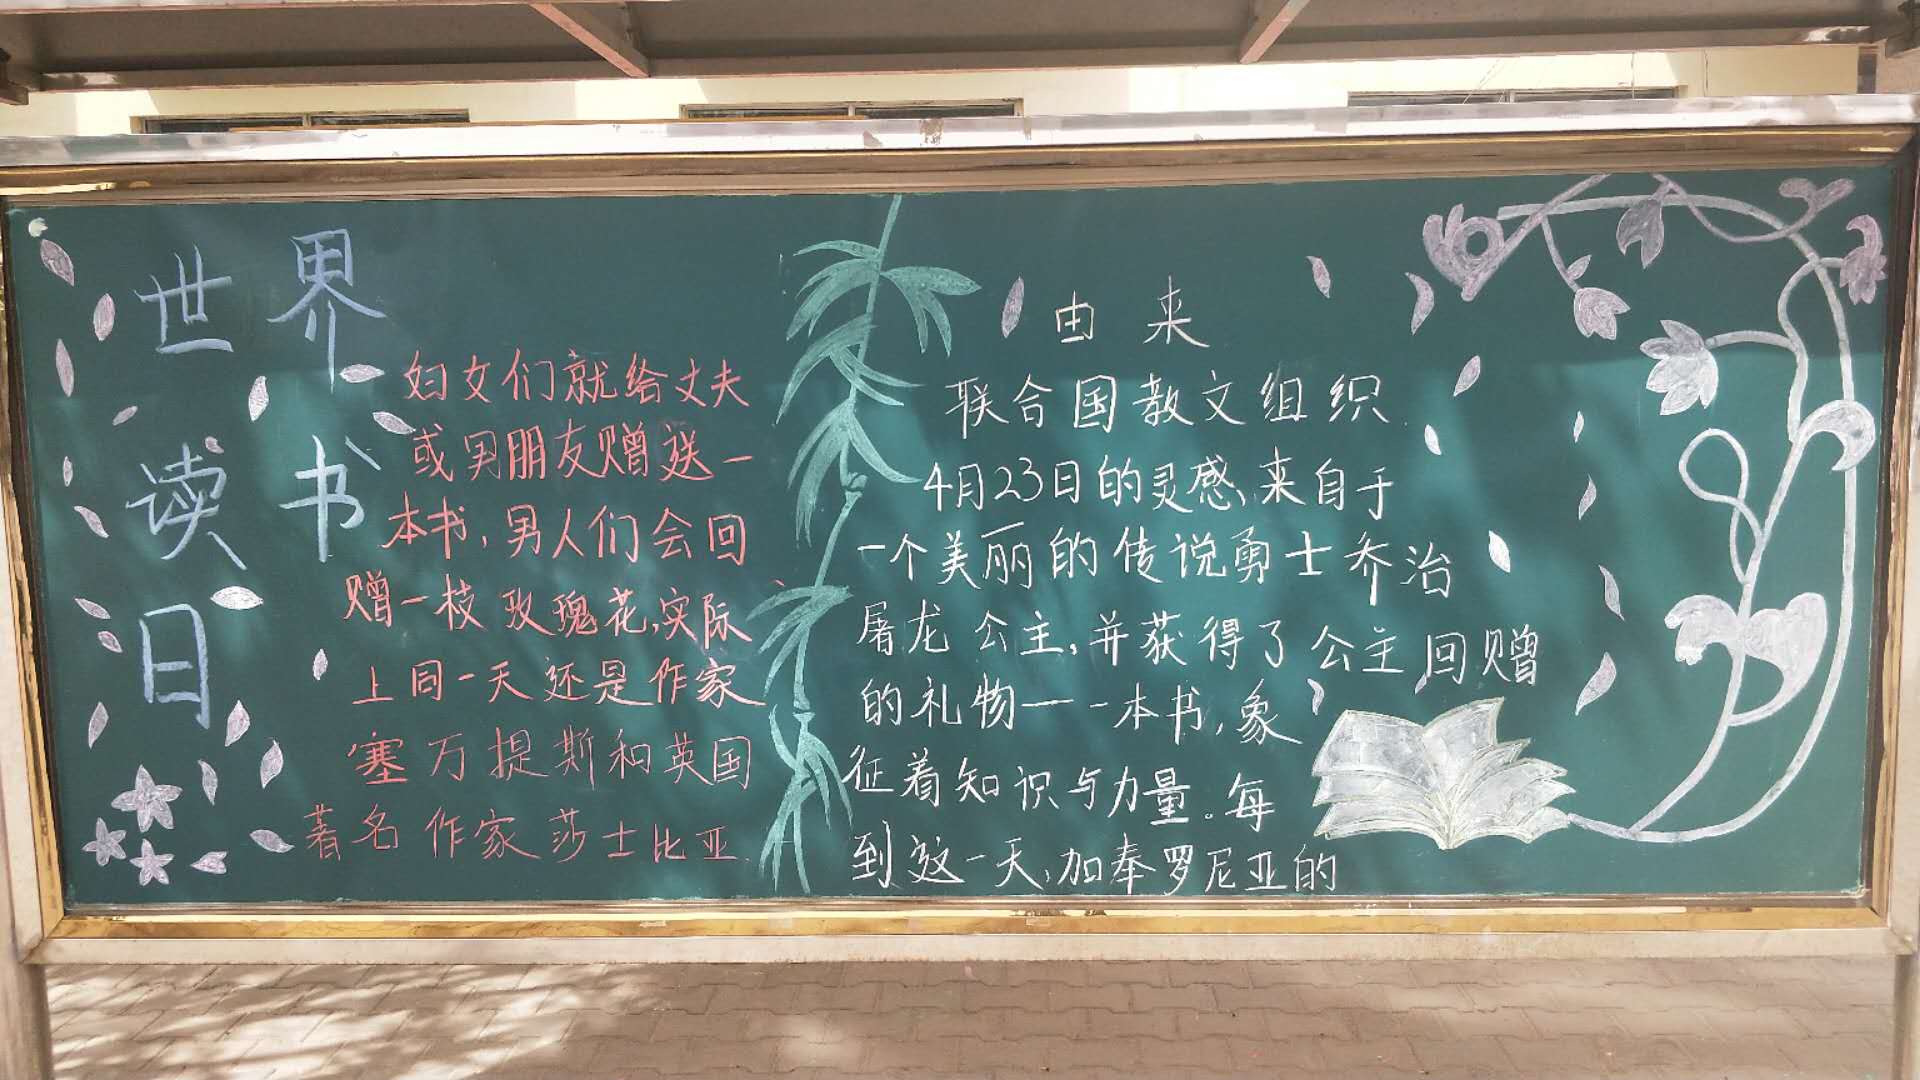 世界
读书
日
由来
联合国教文组织
4月23日的灵感,来自于
一个美丽的传说勇士乔治
屠龙公主,并获得了公主回赠
的礼物——一本书,象
征着知识与力量。每
到这一天,加奉罗尼亚的
妇女们就给丈夫
或男朋友赠送一
本书,男人们会回
赠一枝玫瑰花,实际
上同一天还是作家
塞万提斯和英国
著名作家莎士比亚.